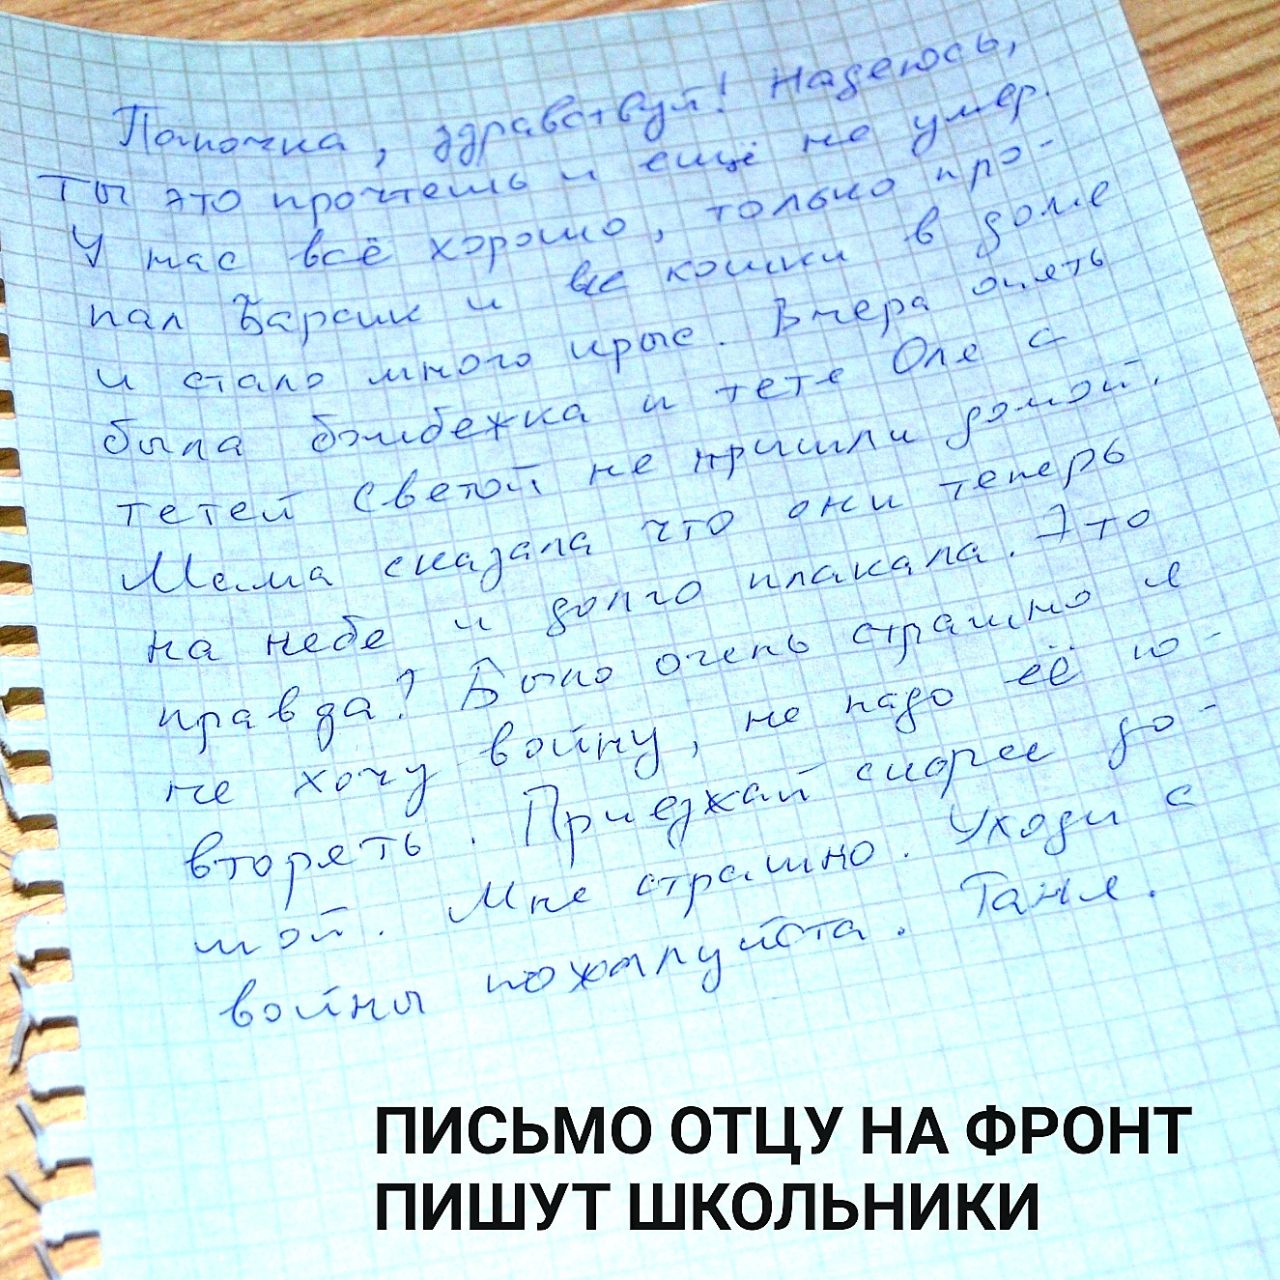 Папочка, здравствуй! Надеюсь,
ты это прочтешь и ещё не умер.
У нас всё хорошо, только про-
пал Барсик и все кошки в доме
и стало много крыс. Вчера опять
была бомбежка и тетя Оля с
тетей Светой не пришли домой.
Мама сказала что они теперь
на небе и долго плакала. Это
правда? Было очень страшно я
не хочу войну, не надо её по-
вторять. Приезжай скорее до-
мой. Мне страшно. Уходи с
войны пожалуйста. Таня.
ПИСЬМО ОТЦУ НА ФРОНТ
ПИШУТ ШКОЛЬНИКИ